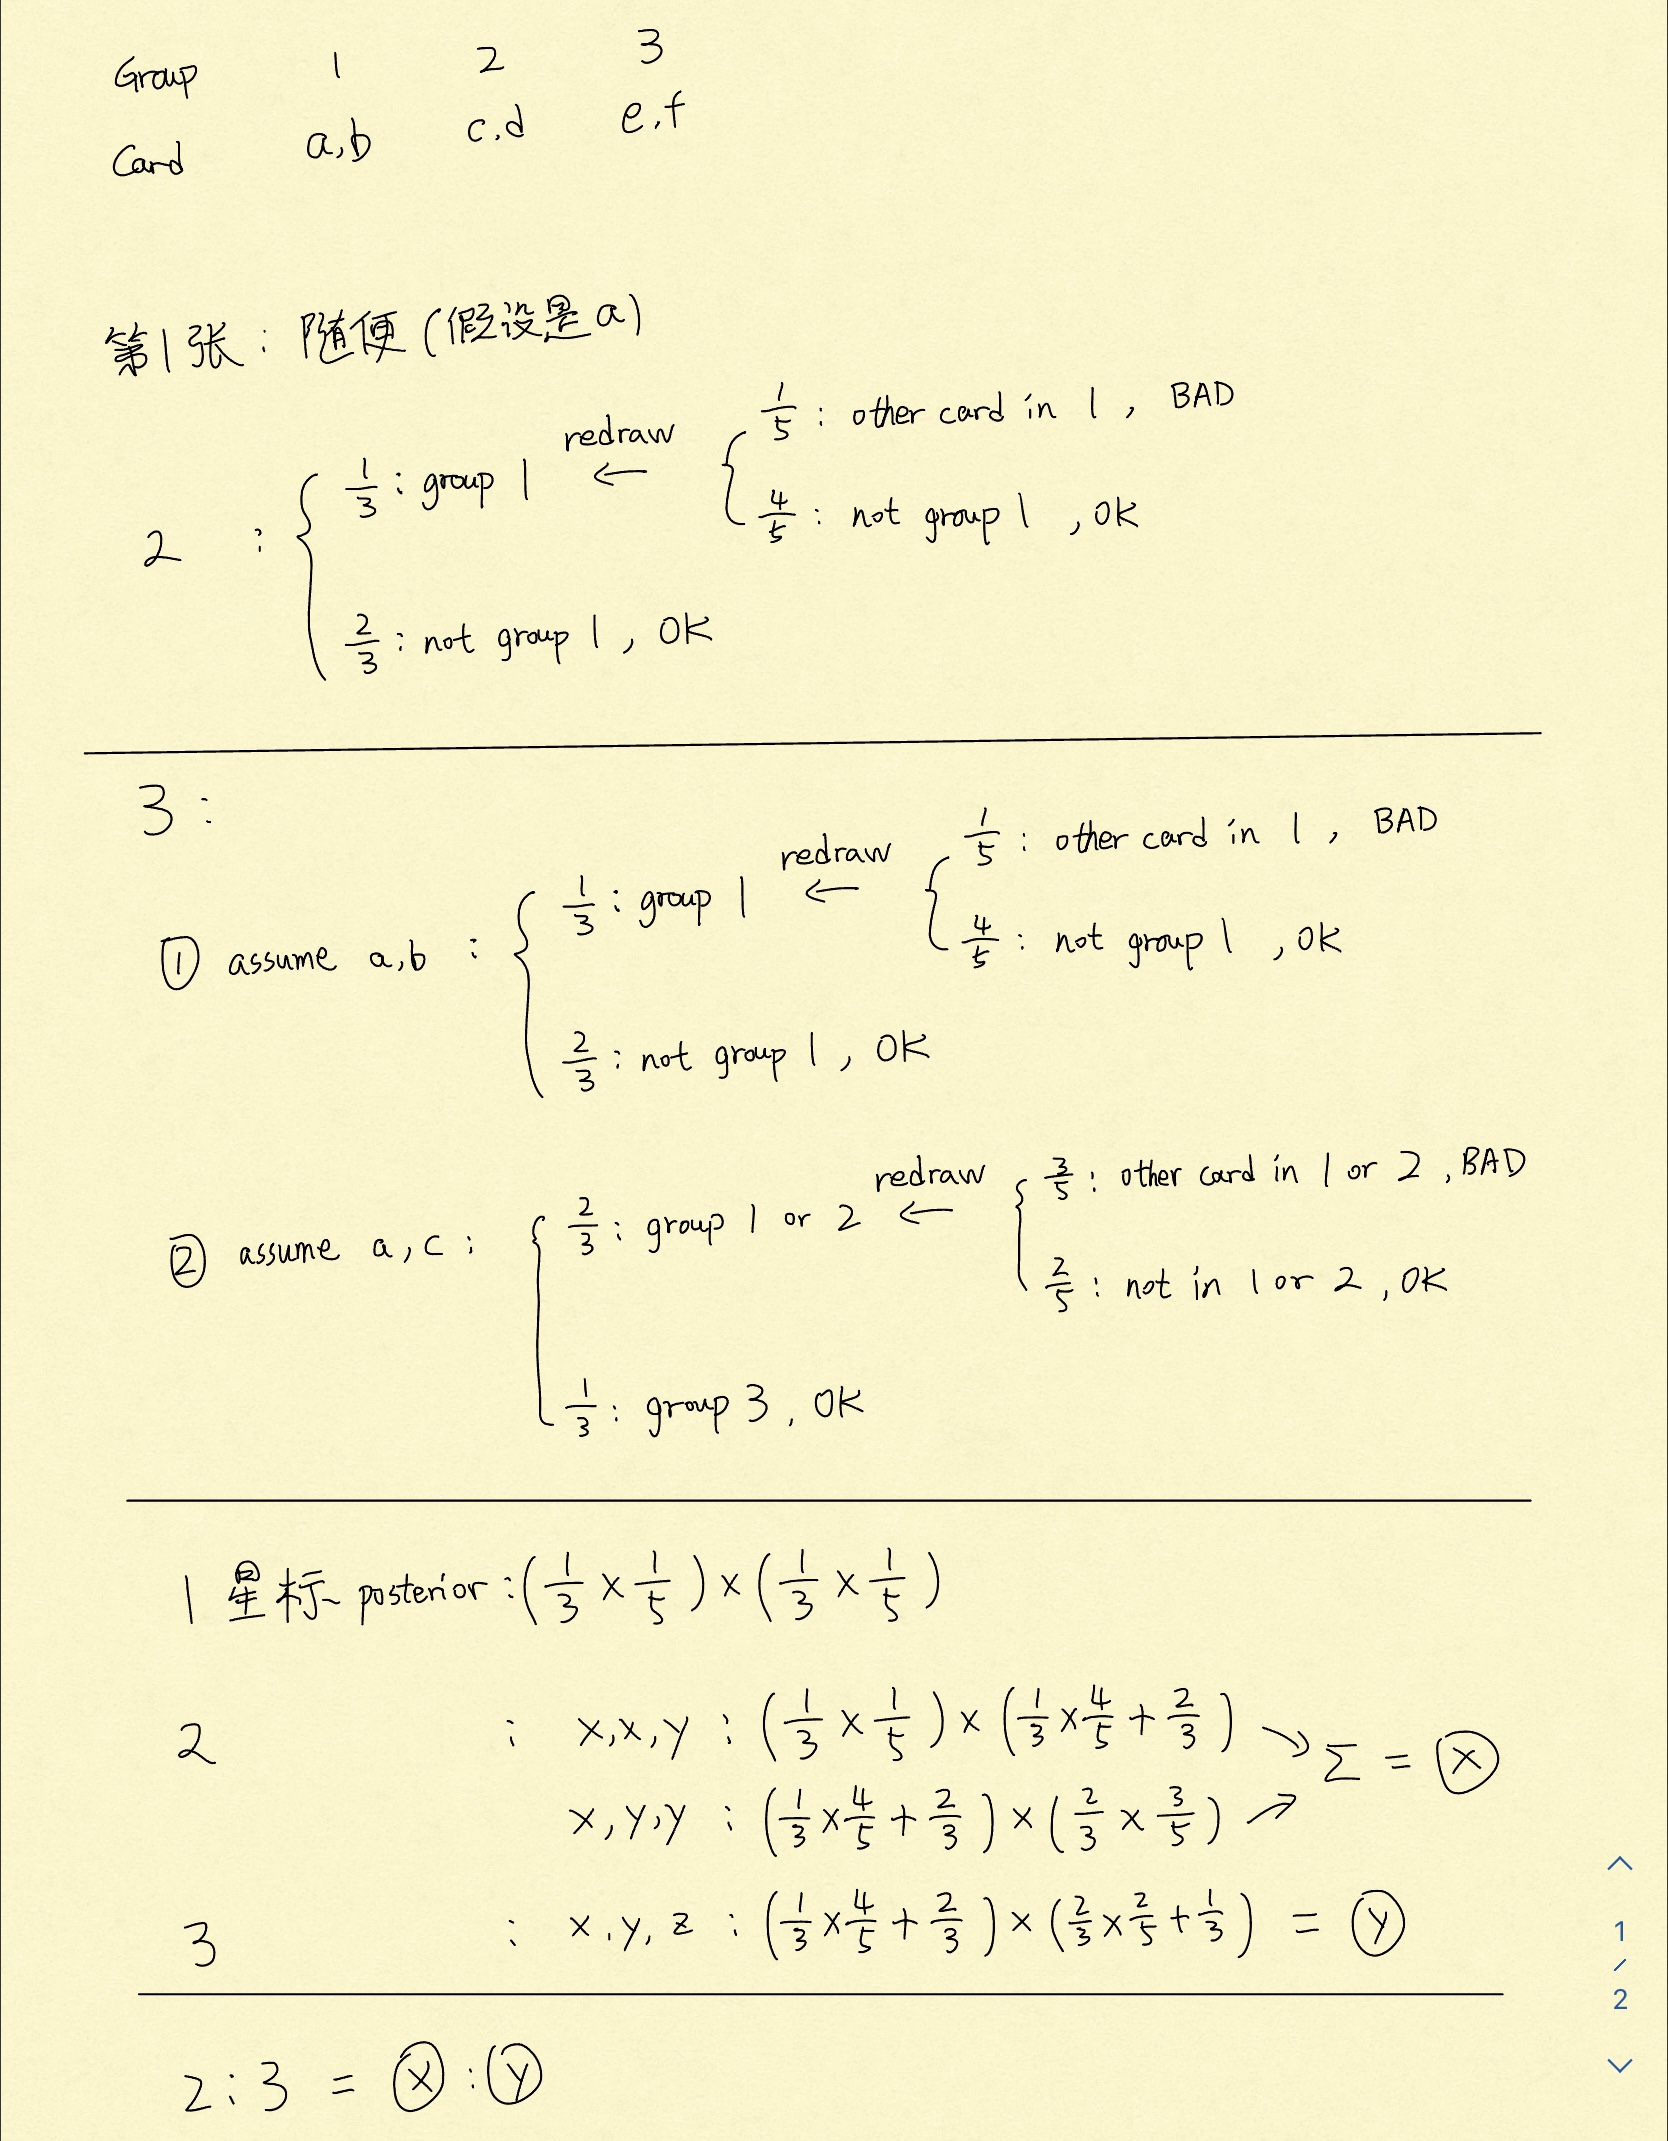 Group 1 2 3
Card a,b c,d e,f
第1张: 随便(假设是a)
2 : { 1/3 : group 1 redraw ← { 1/5 : other card in 1, BAD
4/5 : not group 1, OK
2/3 : not group 1, OK
3 :
① assume a,b : { 1/3 : group 1 redraw ← { 1/5 : other card in 1, BAD
4/5 : not group 1, OK
2/3 : not group 1, OK
② assume a,c : { 2/3 : group 1 or 2 redraw ← { 3/5 : other card in 1 or 2, BAD
2/5 : not in 1 or 2, OK
1/3 : group 3, OK
1 星标 posterior : (1/3 × 1/5) × (1/3 × 1/5)
2 : x,x,y : (1/3 × 1/5) × (1/3 × 4/5 + 2/3) ↘ Σ = ⓧ
x,y,y : (1/3 × 4/5 + 2/3) × (2/3 × 3/5) ↗
3 : x,y,z : (1/3 × 4/5 + 2/3) × (2/3 × 2/5 + 1/3) = ⓨ
2 : 3 = ⓧ : ⓨ
1
/
2